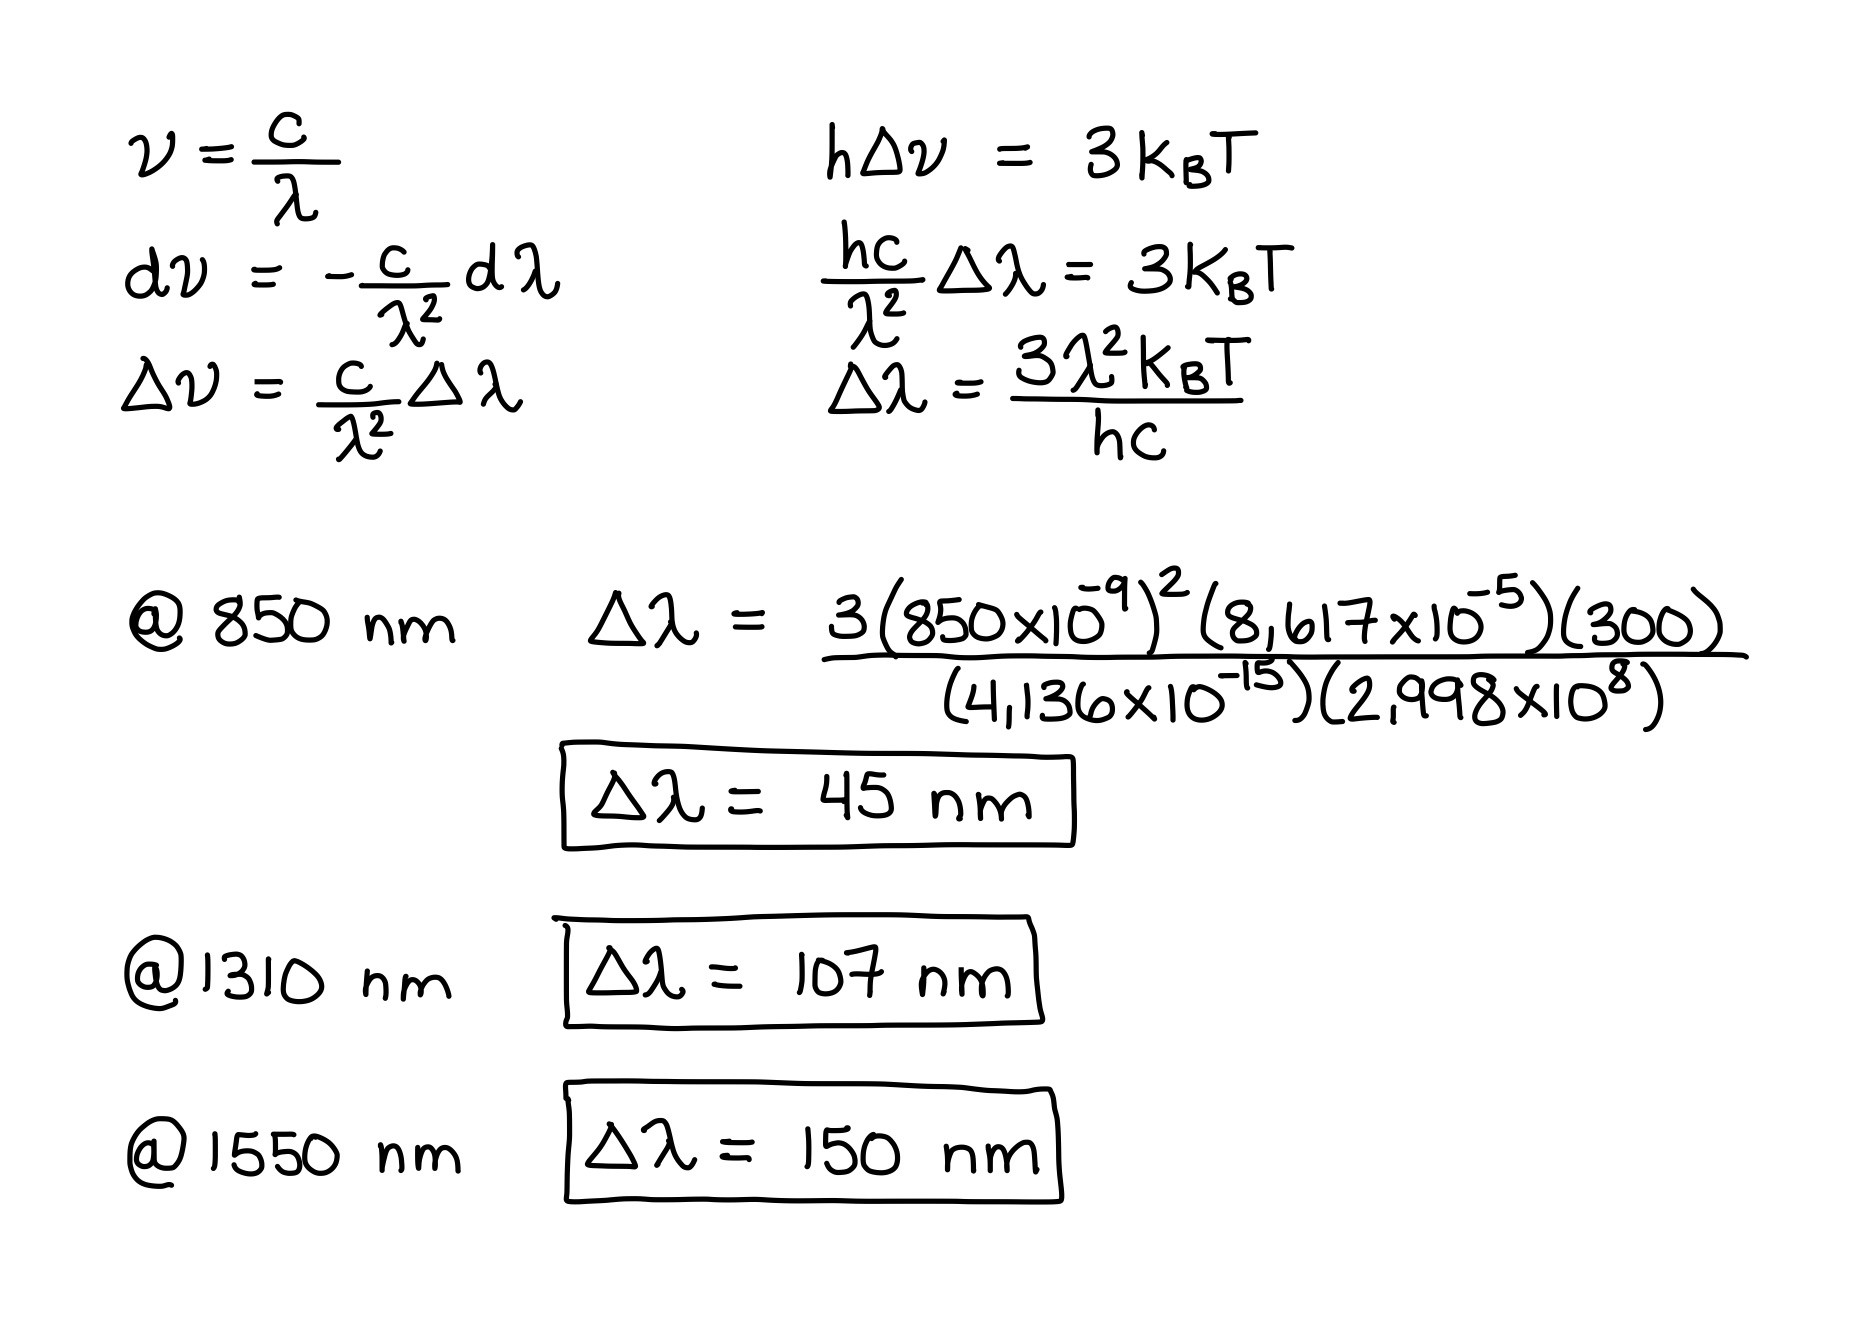 ν = c/λ
hΔν = 3 k_B T
dν = - c/λ² dλ
hc/λ² Δλ = 3 k_B T
Δν = c/λ² Δλ
Δλ = 3λ² k_B T / hc
@ 850 nm Δλ = 3(850x10⁻⁹)²(8,617x10⁻⁵)(300) / (4,136x10⁻¹⁵)(2,998x10⁸)
Δλ = 45 nm
@ 1310 nm Δλ = 107 nm
@ 1550 nm Δλ = 150 nm